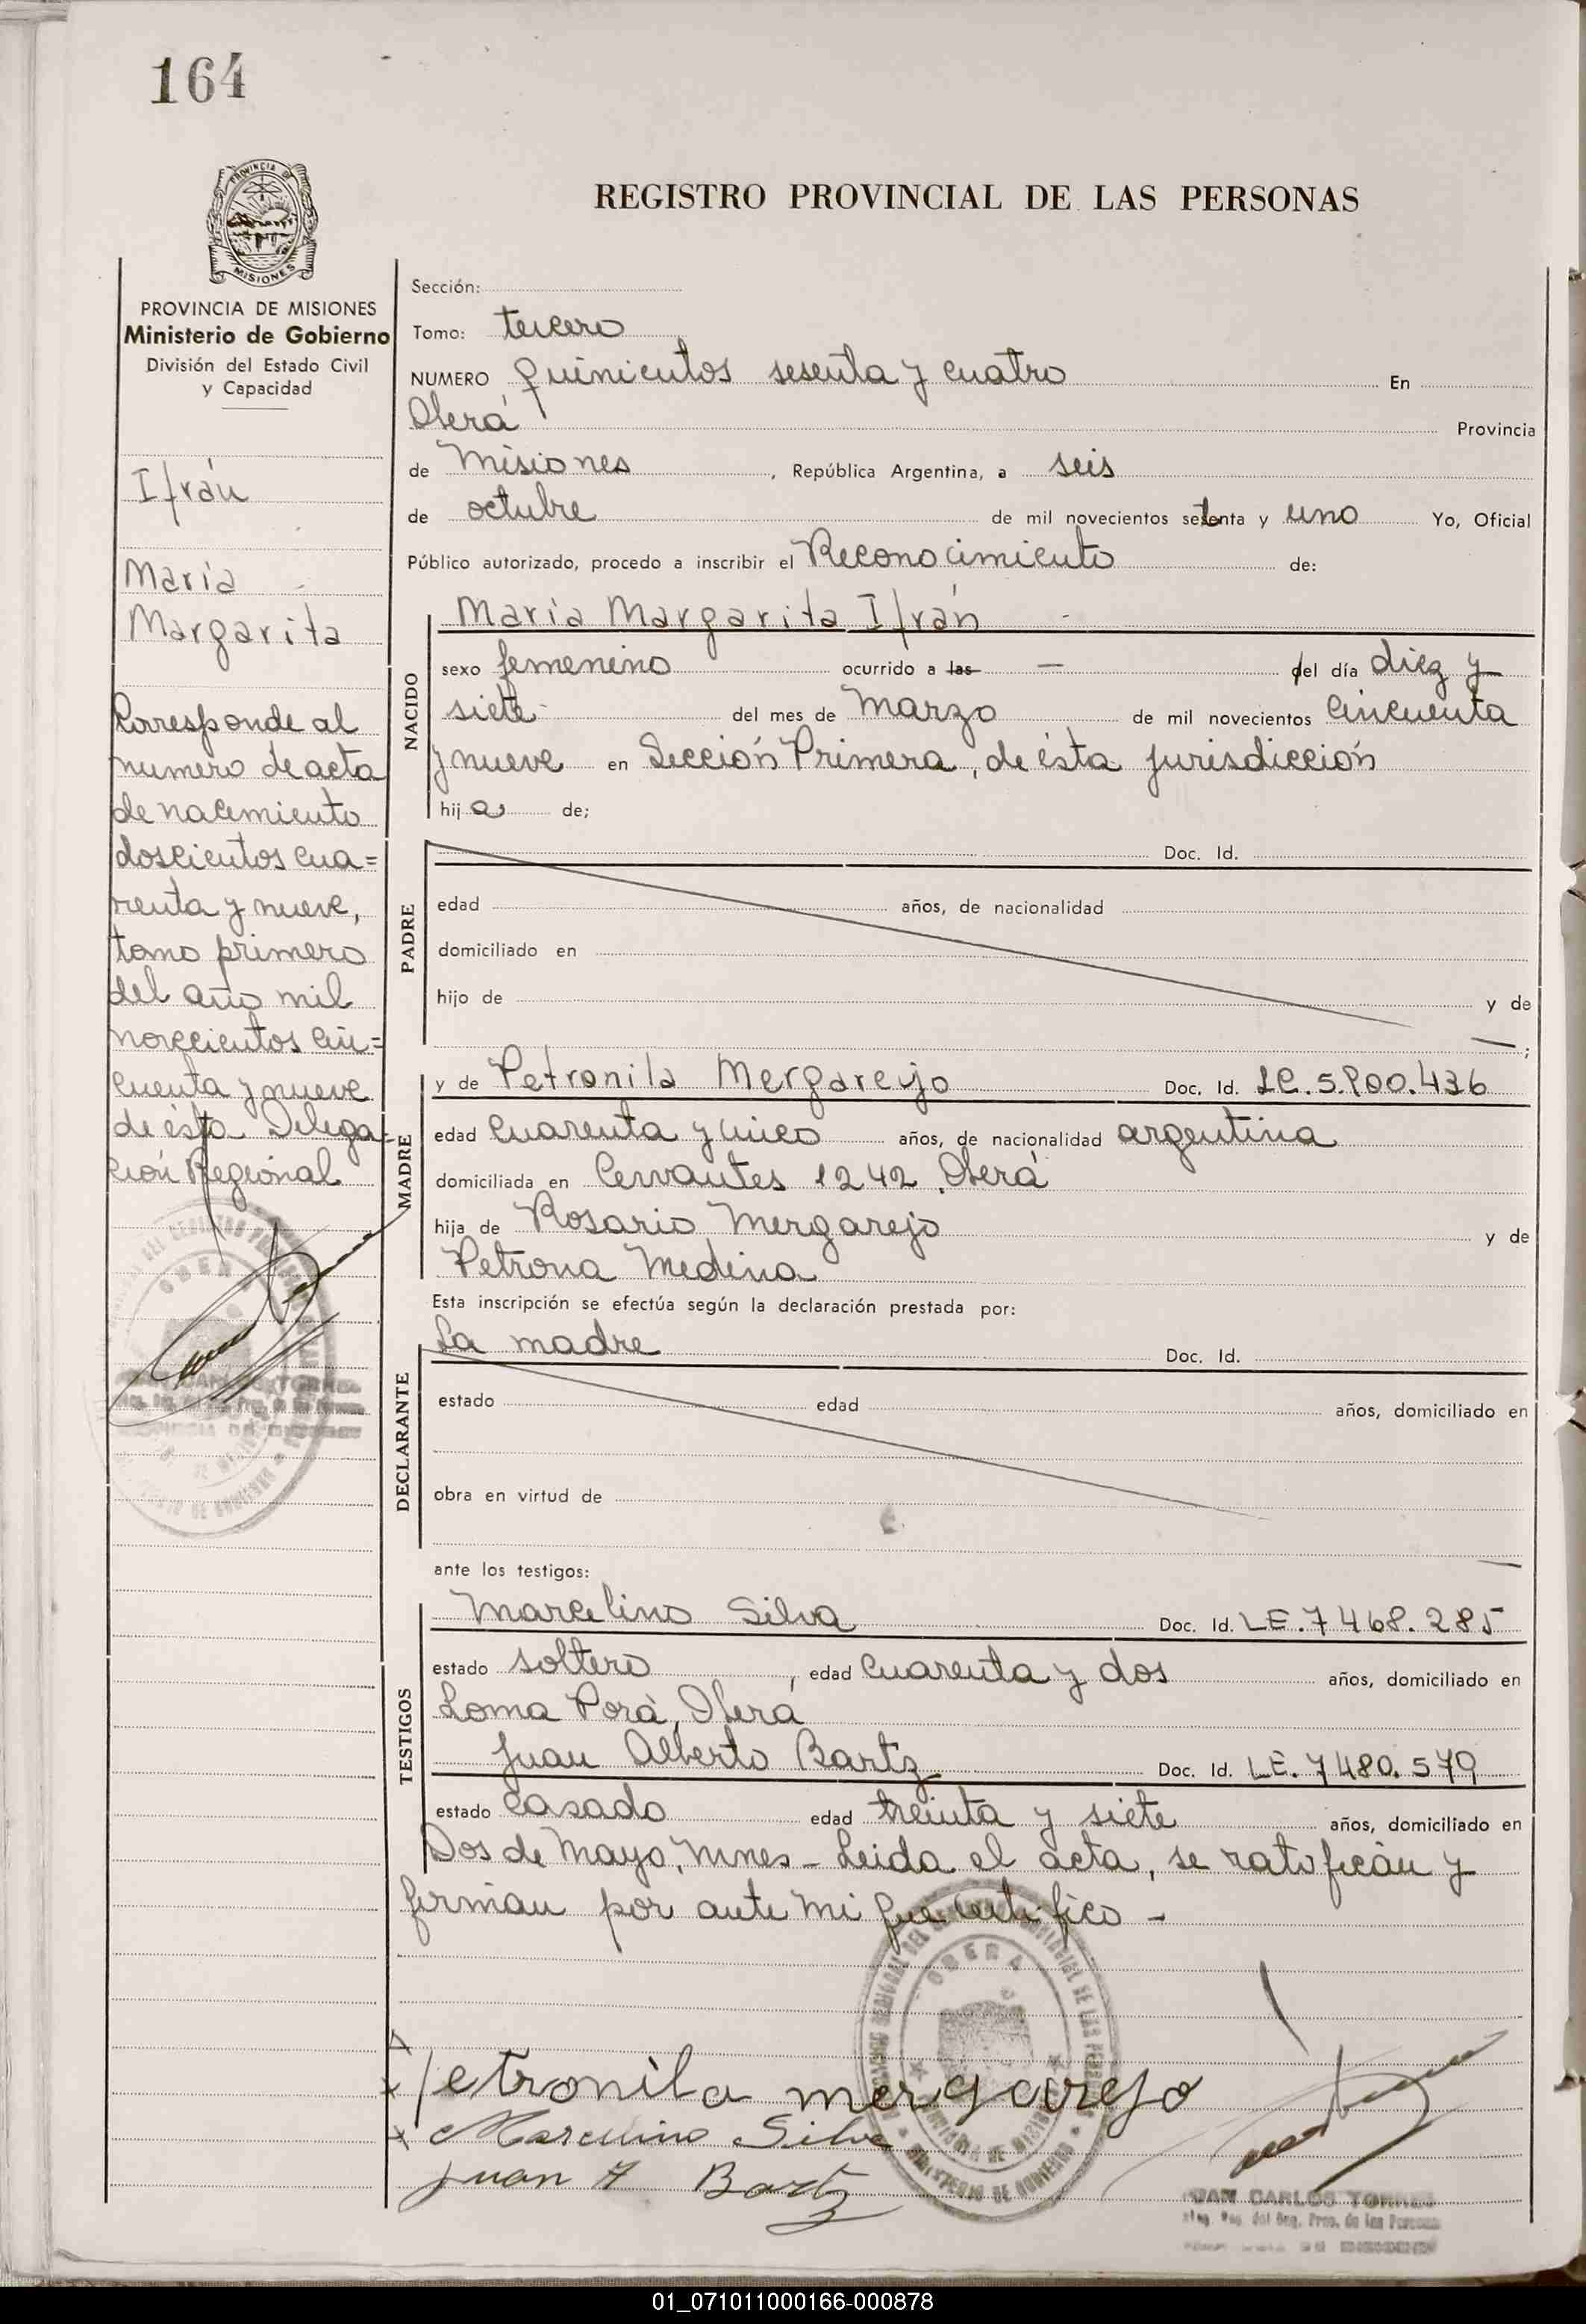 164
PROVINCIA DE
MISIONES
PROVINCIA DE MISIONES
Ministerio de Gobierno
División del Estado Civil
y Capacidad
Ifrán
María
Margarita
Corresponde al
numero de acta
de nacimiento
doscientos cua=
renta y nueve,
tomo primero
del año mil
novecientos cin=
cuenta y nueve
de ésta Delega=
ción Regional
REGISTRO PROVINCIAL DE LAS PERSONAS
Sección:
Tomo: tercero
NUMERO quinientos sesenta y cuatro En
Oberá Provincia
de Misiones, República Argentina, a seis
de octubre de mil novecientos setenta y uno Yo, Oficial
Público autorizado, procedo a inscribir el Reconocimiento de:
NACIDO
María Margarita Ifrán -
sexo femenino ocurrido a las — del día diez y
siete del mes de Marzo de mil novecientos cincuenta
y nueve en Sección Primera, de ésta jurisdicción
hija de;
PADRE
Doc. Id.
edad años, de nacionalidad
domiciliado en
hijo de y de
— ;
MADRE
y de Petronila Mergarejo Doc. Id. LC. 5.900.436
edad cuarenta y cinco años, de nacionalidad argentina
domiciliada en Cervantes 1242, Oberá
hija de Rosario Mergarejo y de
Petrona Medina
Esta inscripción se efectúa según la declaración prestada por:
DECLARANTE
La madre Doc. Id.
estado edad años, domiciliado en
obra en virtud de
ante los testigos:
TESTIGOS
Marcelino Silva Doc. Id. LE. 7468.285
estado soltero, edad cuarenta y dos años, domiciliado en
Loma Porá, Oberá
Juan Alberto Bartz Doc. Id. LE. 7480.579
estado casado edad treinta y siete años, domiciliado en
Dos de Mayo, Mnes - Leida el acta, se ratifican y
firman por ante mi que certifico -
OBERA
Petronila mergarejo
Marcelino Silva
Juan A Bartz
JUAN CARLOS TORRES
01_071011000166-000878